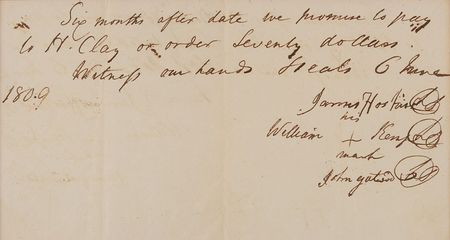 Six months after date we promise to pay
to H. Clay or order Seventy dollars.
Witness our hands & seals 6 June
1809
James
his
William + Kemp LS
mark
John LS